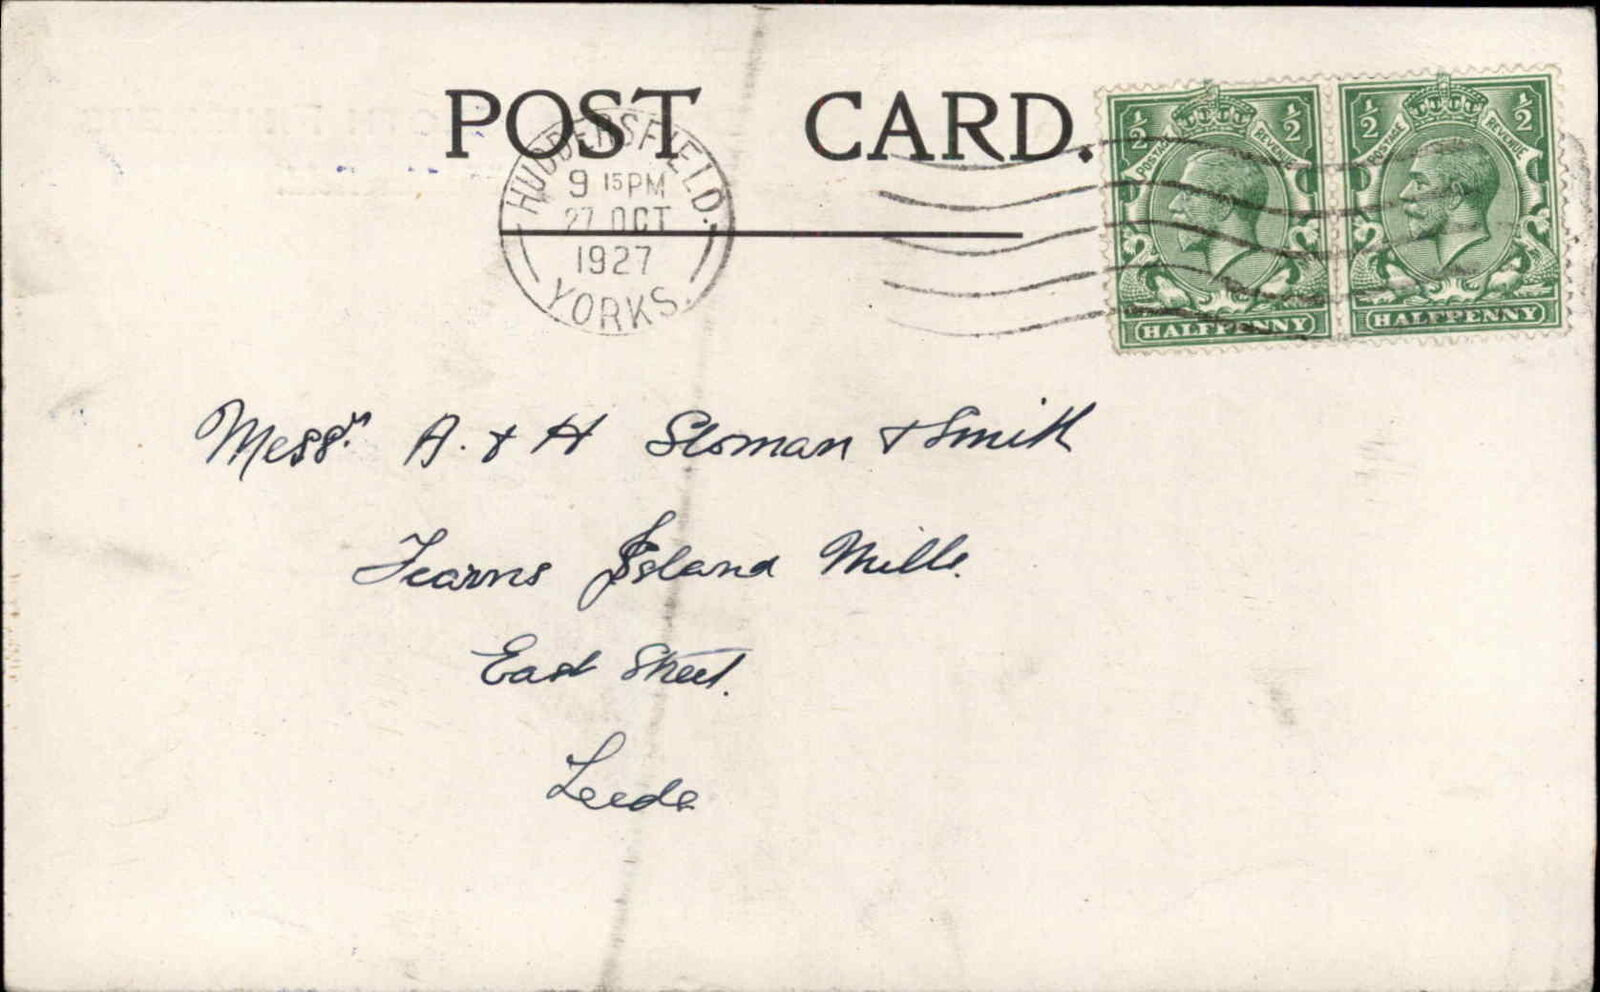 POST CARD.
HUDDERSFIELD.
9 15PM
27 OCT
1927
YORKS.
½ ½
POSTAGE REVENUE
HALFPENNY
½ ½
POSTAGE REVENUE
HALFPENNY
Messrs. A. & H Sloman & Smith
Fearns Island Mills.
East Street.
Leeds